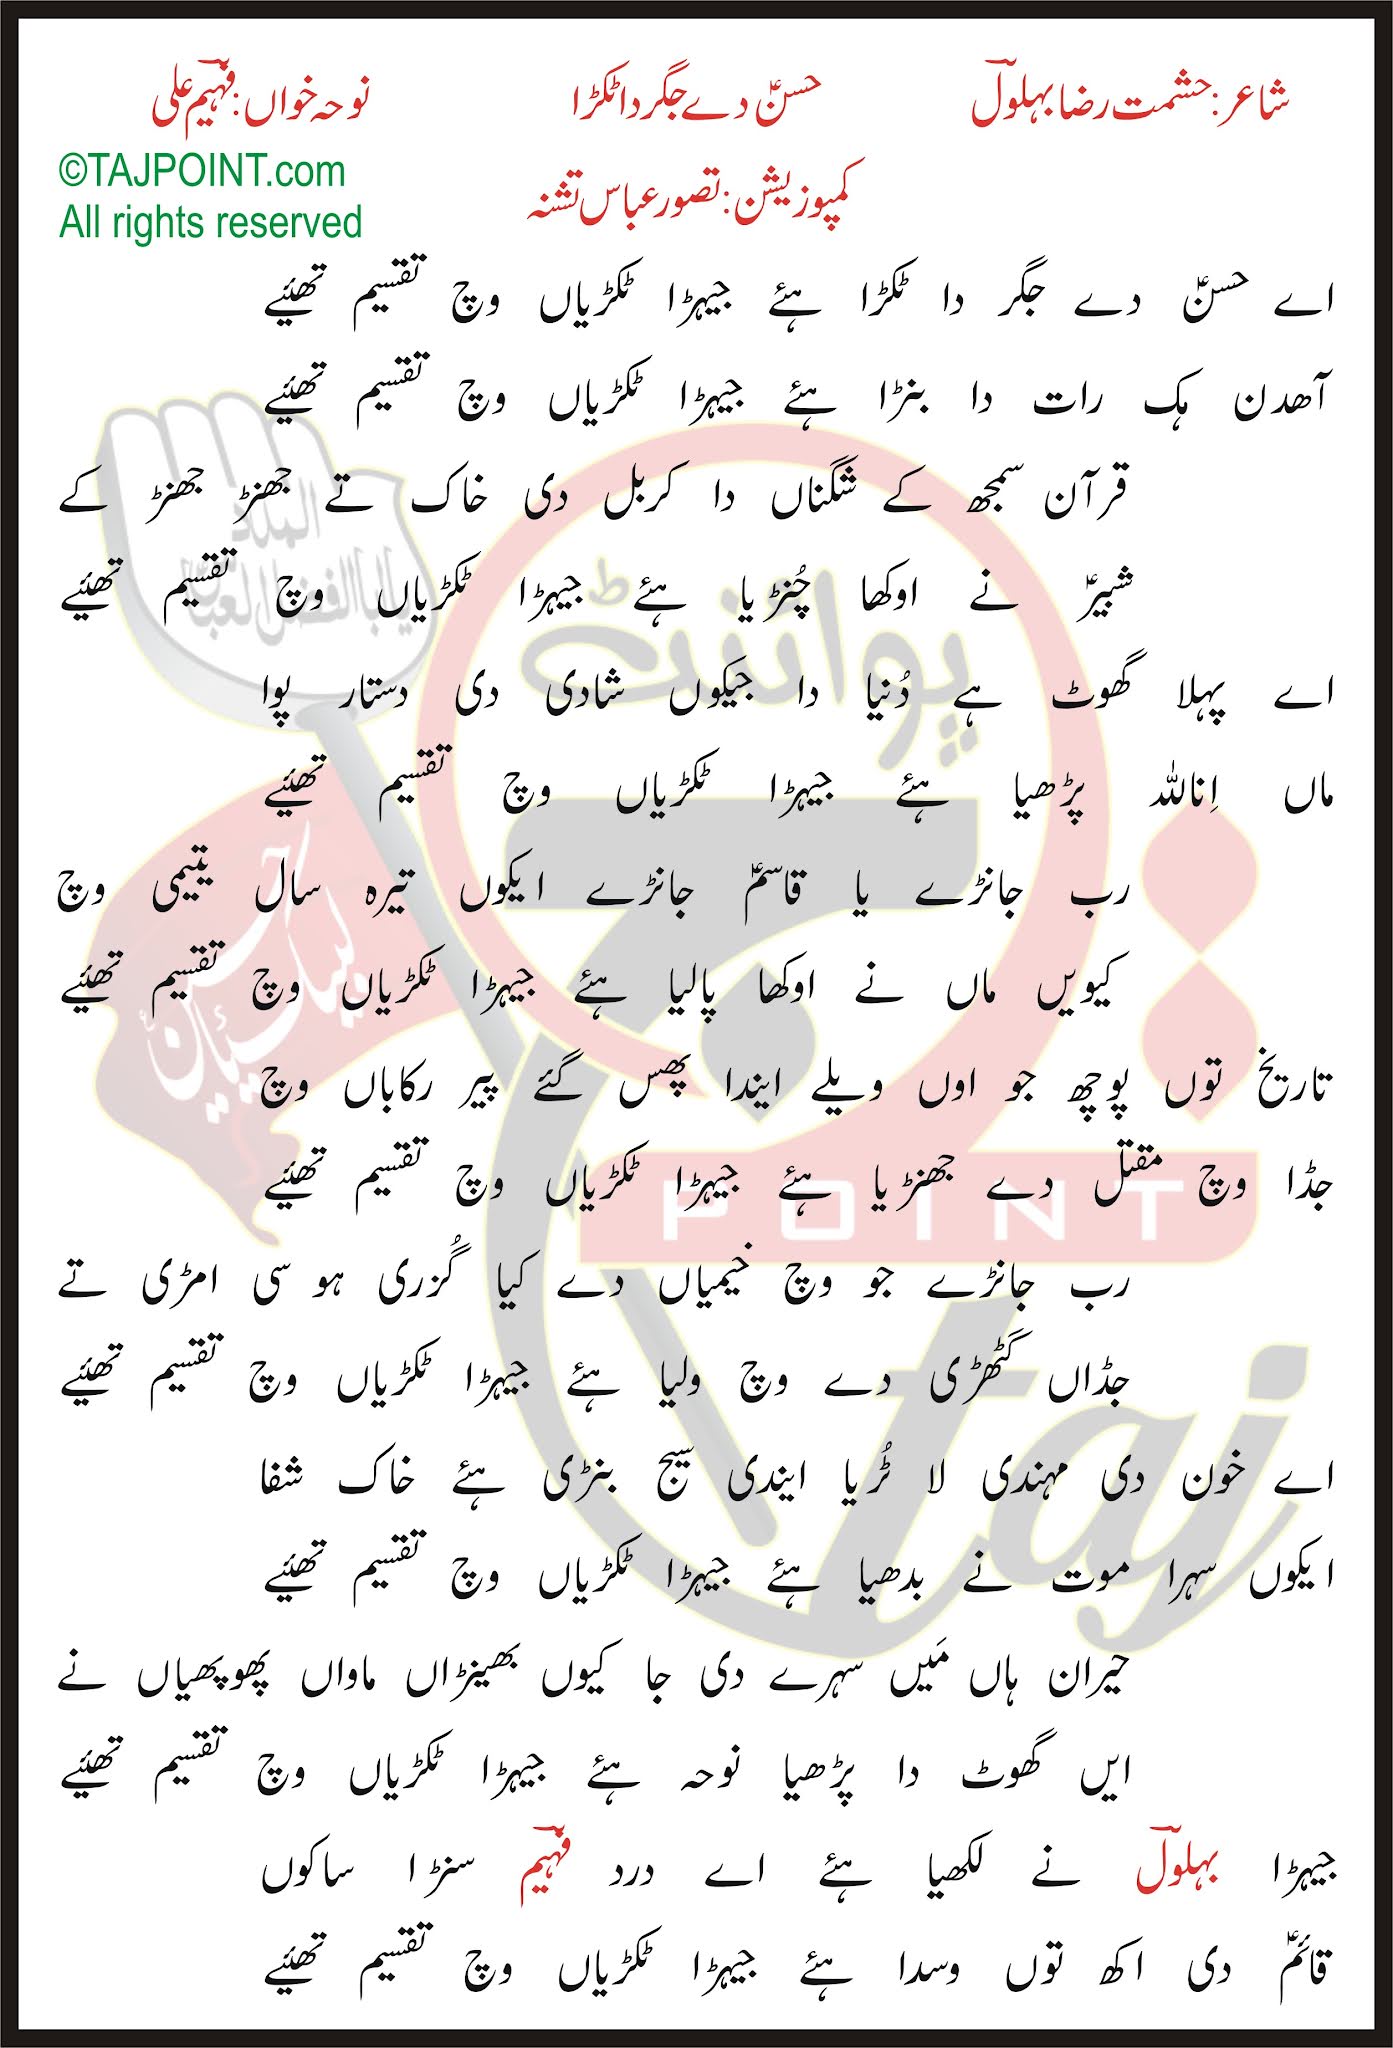 شاعر: حشمت رضا بہلولؔ
حسنؑ دے جگر دا ٹکڑا
نوحہ خواں: فہیمؔ علی
©TAJPOINT.com
All rights reserved
کمپوزیشن: تصور عباس تشنہ
اے حسنؑ دے جگر دا ٹکڑا ہئے جیہڑا ٹکڑیاں وچ تقسیم تھئیے
آھدن ہک رات دا بنڑا ہئے جیہڑا ٹکڑیاں وچ تقسیم تھئیے
قرآن سمجھ کے شگناں دا کربل دی خاک تے جھنڑ جھنڑ کے
شبیرؑ نے اوکھا چُنڑیا ہئے جیہڑا ٹکڑیاں وچ تقسیم تھئیے
اے پہلا گھوٹ ہے دُنیا دا جیکوں شادی دی دستار پوا
ماں اِناللہ پڑھیا ہئے جیہڑا ٹکڑیاں وچ تقسیم تھئیے
رب جانڑے یا قاسمؑ جانڑے ایکوں تیرہ سال یتیمی وچ
کیویں ماں نے اوکھا پالیا ہئے جیہڑا ٹکڑیاں وچ تقسیم تھئیے
تاریخ توں پوچھ جو اوں ویلے ایندا پھس گئے پیر رکاباں وچ
جڈا وچ مقتل دے جھنڑیا ہئے جیہڑا ٹکڑیاں وچ تقسیم تھئیے
رب جانڑے جو وچ خیمیاں دے کیا گُزری ہوسی امڑی تے
جڈاں گٹھڑی دے وچ ولیا ہئے جیہڑا ٹکڑیاں وچ تقسیم تھئیے
اے خون دی مہندی لا ٹُریا ایندی سیج بنڑی ہئے خاک شفا
ایکوں سہرا موت نے بدھیا ہئے جیہڑا ٹکڑیاں وچ تقسیم تھئیے
حیران ہاں مَیں سہرے دی جا کیوں بھینڑاں ماواں پھوپھیاں نے
ایں گھوٹ دا پڑھیا نوحہ ہئے جیہڑا ٹکڑیاں وچ تقسیم تھئیے
جیہڑا بہلولؔ نے لکھیا ہئے اے درد فہیمؔ سنڑا ساکوں
قائمؑ دی اکھ توں وسدا ہئے جیہڑا ٹکڑیاں وچ تقسیم تھئیے
پوائنٹ
POINT
taj